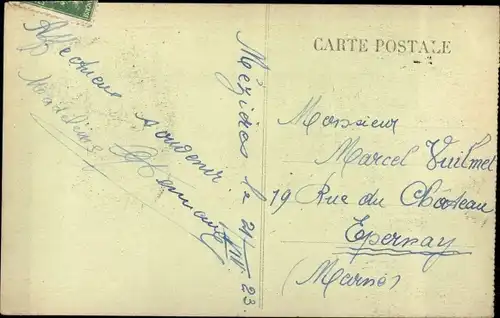 CARTE POSTALE
Affectueux
souvenir
Madeleine
Mézidon le 21/VIII 23
Monsieur
Marcel Vuilmet
19 Rue du Château
Epernay
(Marne)